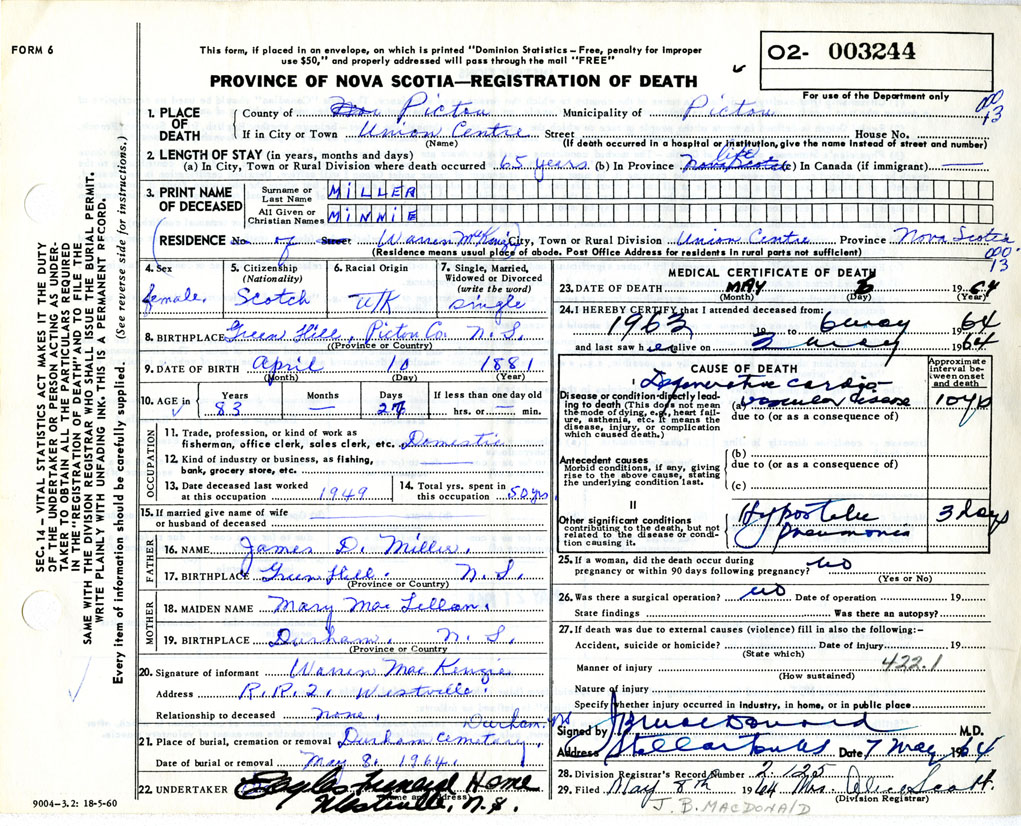 FORM 6
This form, if placed in an envelope, on which is printed "Dominion Statistics – Free, penalty for improper
use $50," and properly addressed will pass through the mail "FREE"
PROVINCE OF NOVA SCOTIA—REGISTRATION OF DEATH
O2- 003244
For use of the Department only
000
13
1. PLACE OF DEATH
County of Pictou Municipality of Pictou
If in City or Town Union Centre Street House No.
(Name) (If death occurred in a hospital or institution, give the name instead of street and number)
2. LENGTH OF STAY (in years, months and days)
(a) In City, Town or Rural Division where death occurred 65 years (b) In Province life Nova Scotia (c) In Canada (if immigrant) —
3. PRINT NAME OF DECEASED
Surname or Last Name MILLER
All Given or Christian Names MINNIE
RESIDENCE No. of Street Warren McKenzie City, Town or Rural Division Union Centre Province Nova Scotia
(Residence means usual place of abode. Post Office Address for residents in rural parts not sufficient)
000
13
4. Sex female.
5. Citizenship (Nationality) Scotch
6. Racial Origin UK
7. Single, Married, Widowed or Divorced (write the word) single
8. BIRTHPLACE Green Hill, Pictou Co. N.S.
(Province or Country)
9. DATE OF BIRTH April 10 1881
(Month) (Day) (Year)
10. AGE in Years 83 Months — Days 27 If less than one day old hrs. or — min.
OCCUPATION
11. Trade, profession, or kind of work as
fisherman, office clerk, sales clerk, etc. Domestic
12. Kind of industry or business, as fishing,
bank, grocery store, etc.
13. Date deceased last worked
at this occupation 1949
14. Total yrs. spent in
this occupation 50 yrs.
15. If married give name of wife
or husband of deceased
FATHER
16. NAME James D. Miller.
17. BIRTHPLACE Green Hill. N.S.
(Province or Country)
MOTHER
18. MAIDEN NAME Mary MacLellan.
19. BIRTHPLACE Durham, N.S.
(Province or Country
20. Signature of informant Warren MacKenzie
Address R.R.2. Westville.
Relationship to deceased none.
Durham, NS
21. Place of burial, cremation or removal Durham Cemetary,
Date of burial or removal May 8, 1964.
22. UNDERTAKER Eagles Funeral Home
(Name and Address)
Westville, N.S.
9004–3.2: 18-5-60
MEDICAL CERTIFICATE OF DEATH
23. DATE OF DEATH MAY 6 1964
(Month) (Day) (Year)
24. I HEREBY CERTIFY that I attended deceased from:
1963 19 to 6 May 1964
and last saw her alive on May 1964
CAUSE OF DEATH
Approximate interval between onset and death
I
Disease or condition directly leading to death (This does not mean the mode of dying, e.g., heart failure, asthenia, etc. It means the disease, injury, or complication which caused death.)
Degenerative cardio-
(a) vascular disease 10 yrs
due to (or as a consequence of)
Antecedent causes
Morbid conditions, if any, giving rise to the above cause, stating the underlying condition last.
(b)
due to (or as a consequence of)
(c)
II
Other significant conditions
contributing to the death, but not related to the disease or condition causing it.
Hypostatic
pneumonia 3 days
25. If a woman, did the death occur during
pregnancy or within 90 days following pregnancy? no
(Yes or No)
26. Was there a surgical operation? no Date of operation 19
State findings Was there an autopsy?
27. If death was due to external causes (violence) fill in also the following:–
Accident, suicide or homicide? Date of injury 19
(State which)
422.1
Manner of injury
(How sustained)
Nature of injury
Specify whether injury occurred in industry, in home, or in public place
Signed by JBMacDonald M.D.
Address Stellarton NS Date 7 May 1964
28. Division Registrar's Record Number 2125
29. Filed May 8th 1964 Mrs. Alice Scott.
(Division Registrar)
J. B. MACDONALD
SEC. 14 – VITAL STATISTICS ACT MAKES IT THE DUTY
OF THE UNDERTAKER OR PERSON ACTING AS UNDER-
TAKER TO OBTAIN ALL THE PARTICULARS REQUIRED
IN THE "REGISTRATION OF DEATH" AND TO FILE THE
SAME WITH THE DIVISION REGISTRAR WHO SHALL ISSUE THE BURIAL PERMIT.
WRITE PLAINLY WITH UNFADING INK. THIS IS A PERMANENT RECORD.
Every item of information should be carefully supplied. (See reverse side for instructions.)